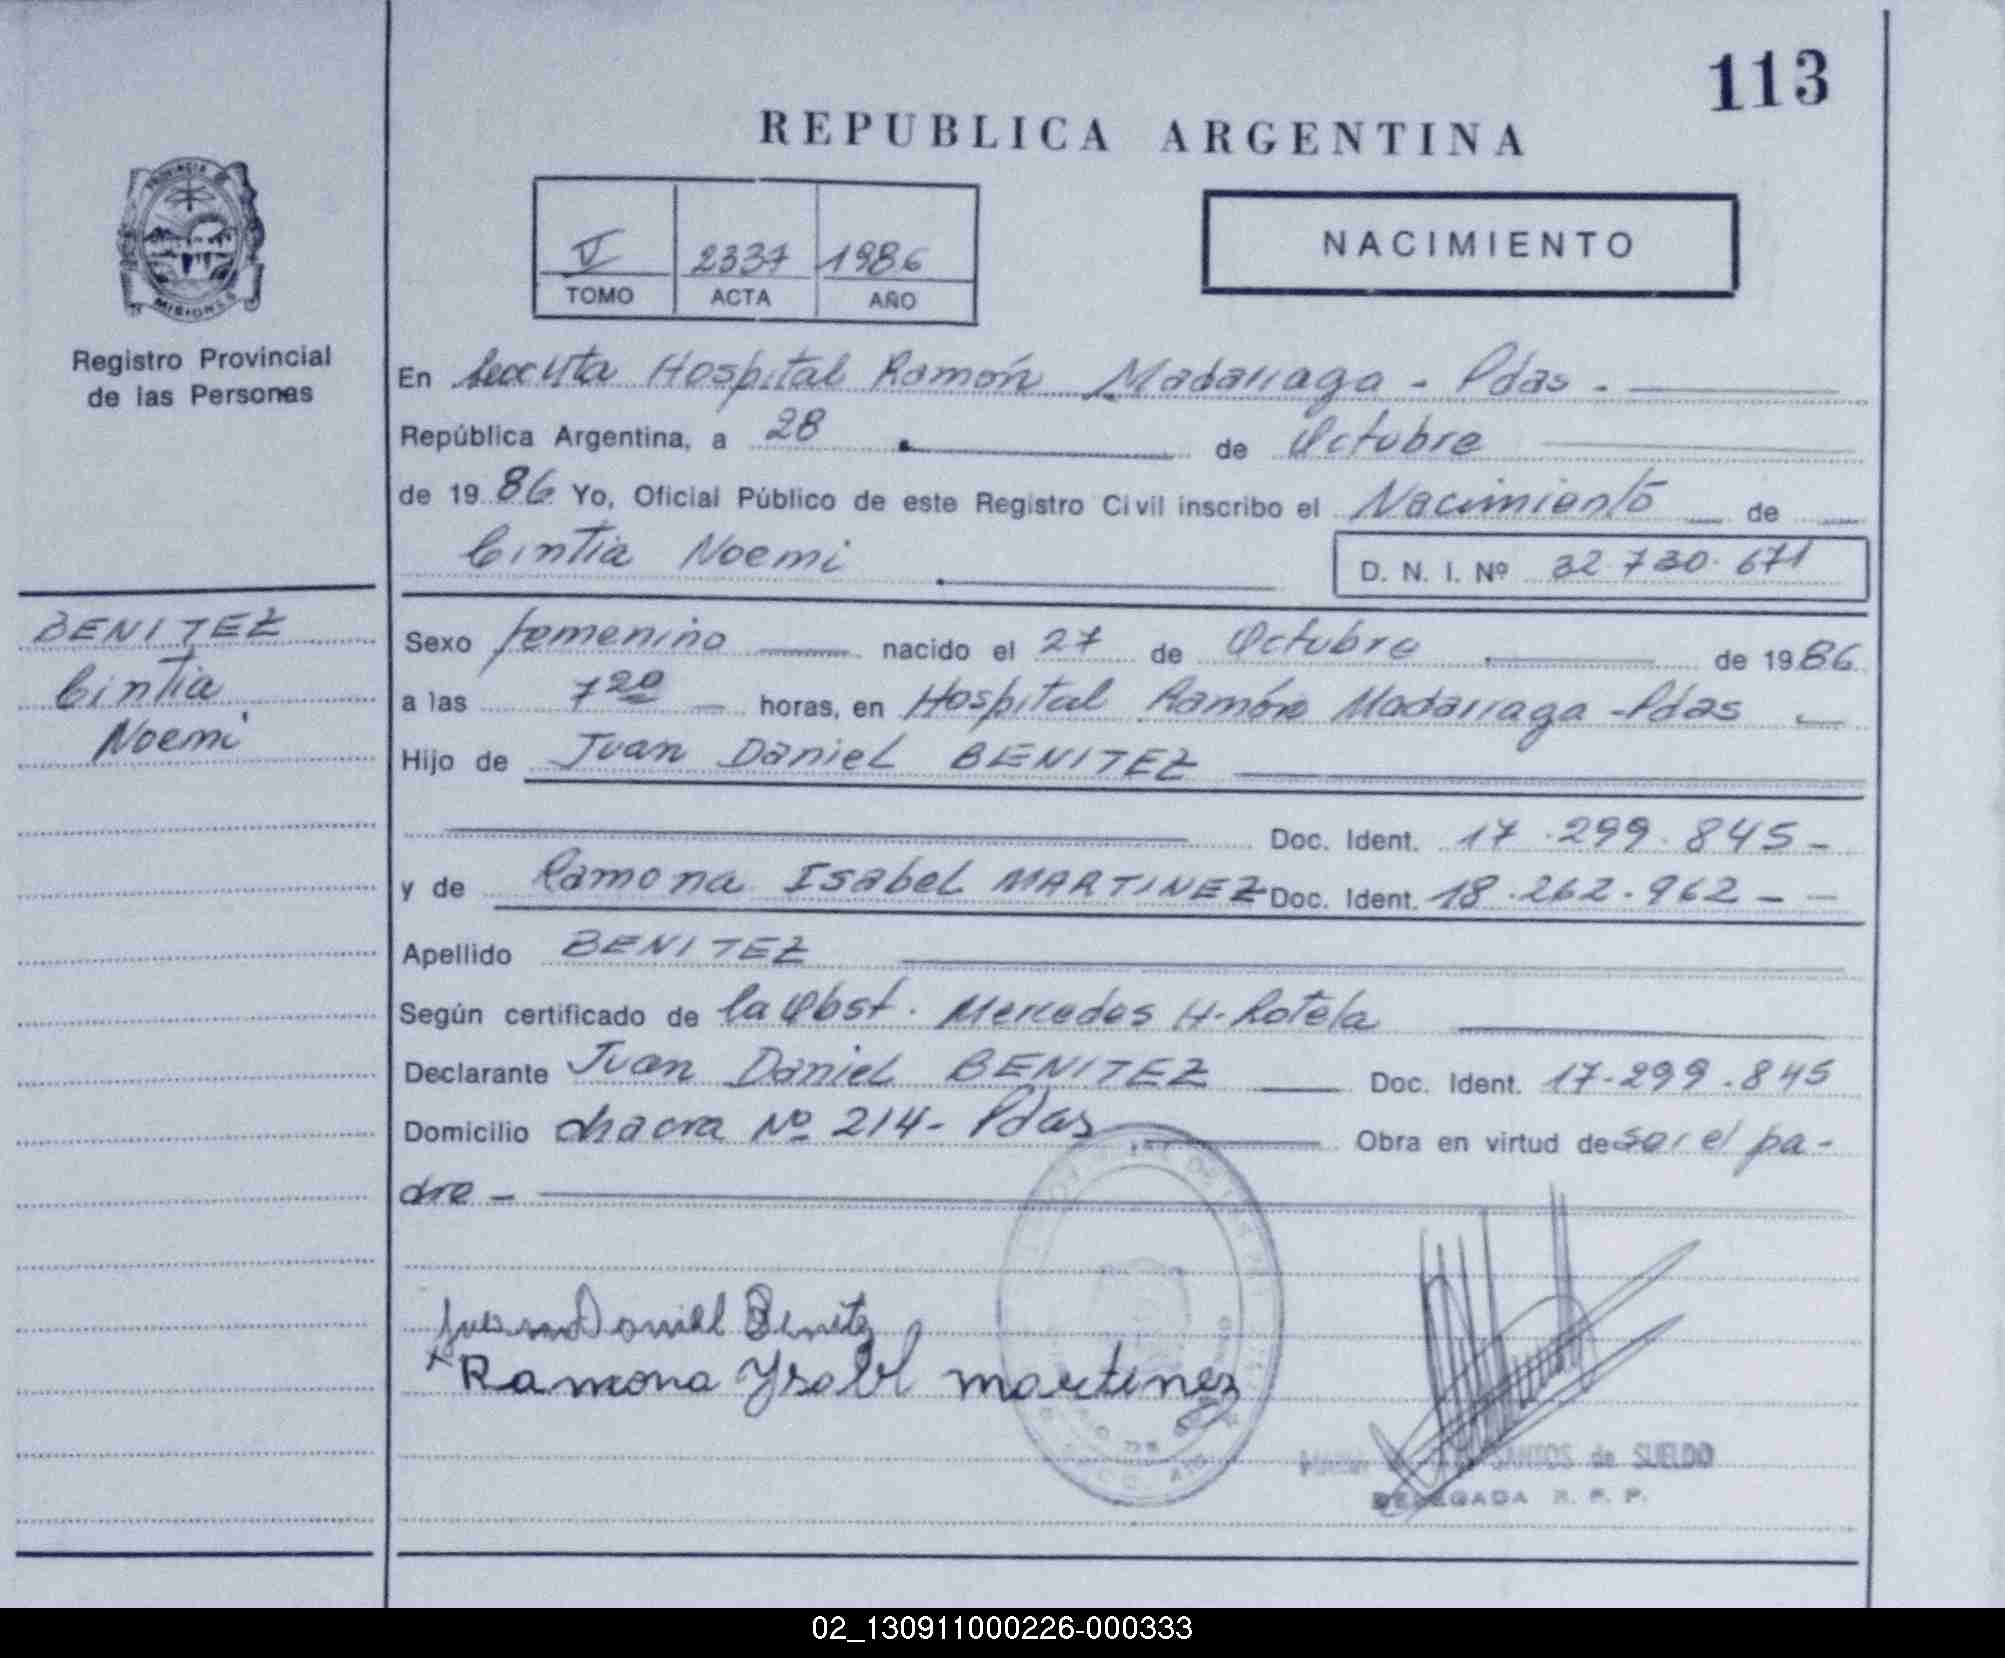 113
REPUBLICA ARGENTINA
PROVINCIA DE
MISIONES
V 2337 1986
TOMO ACTA AÑO
NACIMIENTO
Registro Provincial
de las Personas
En Hospital Ramón Madariaga - Pdas -
República Argentina, a 28 de Octubre
de 1986 Yo, Oficial Público de este Registro Civil inscribo el Nacimiento de
Cintia Noemi D. N. I. Nº 32.730.671
BENITEZ
Cintia
Noemi
Sexo femenino nacido el 27 de Octubre de 1986
a las 7 20 horas, en Hospital Ramón Madariaga - Pdas
Hijo de Juan Daniel BENITEZ
Doc. Ident. 17.299.845-
y de Ramona Isabel MARTINEZ Doc. Ident. 18.262.962--
Apellido BENITEZ
Según certificado de la Obst. Mercedes H. Rotela
Declarante Juan Daniel BENITEZ Doc. Ident. 17-299.845
Domicilio chacra Nº 214- Pdas Obra en virtud de ser el pa-
dre -
Juan Daniel Benitez
Ramona Ysabel martinez
SANTOS de SUELDO
DELEGADA R. P. P.
02_130911000226-000333